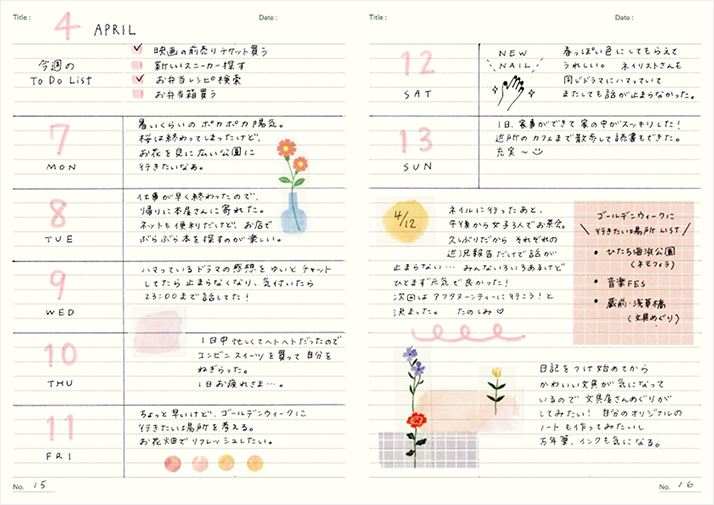 Title :
Date :
4 APRIL
今週の
To Do List
映画の前売りチケット買う
新しいスニーカー探す
お弁当レシピ検索
お弁当箱買う
7
MON
暑いくらいの ポカポカ陽気。
桜は終わってしまったけど、
お花を見に広い公園に
行きたいなぁ。
8
TUE
仕事が早く終わったので、
帰りに本屋さんに寄れた。
ネットも便利だけど、お店で
ぶらぶら本を探すのが楽しい。
9
WED
ハマっているドラマの感想をゆいとチャット
してたら 止まらなくなり、気付いたら
23:00まで話してた！
10
THU
1日中忙しくてヘトヘトだったので
コンビニスイーツを買って自分を
ねぎらった。
1日お疲れさま…。
11
FRI
ちょっと早いけど、ゴールデンウィークに
行きたい場所を考える。
お花畑でリフレッシュしたい。
No. 15
Title :
Date :
12
SAT
NEW
NAIL
春っぽい色にしてもらえて
うれしい。ネイリストさんも
同じドラマにハマっていて
またしても話が止まらなかった。
13
SUN
1日、家事ができて家の中がスッキリした！
近所のカフェまで散歩して読書もできた。
充実〜
4/12
ネイルに行ったあと、
午後から女子3人でお茶会。
久しぶりだから それぞれの
近況報告だけで話が
止まらない… みんないろいろあるけど
ひとまず元気で良かった！
次回はアフタヌーンティーに行こう！と
決まった。 たのしみ♡
ゴールデンウィークに
行きたい場所 LIST
• ひたち海浜公園
(ネモフィラ)
• 音楽FES
• 蔵前・浅草橋
(文具めぐり)
日記をつけ始めてから
かわいい文具が気になって
いるので 文具屋さんめぐりが
してみたい！ 自分のオリジナルの
ノートも作ってみたいし
万年筆、インクも気になる。
No. 16